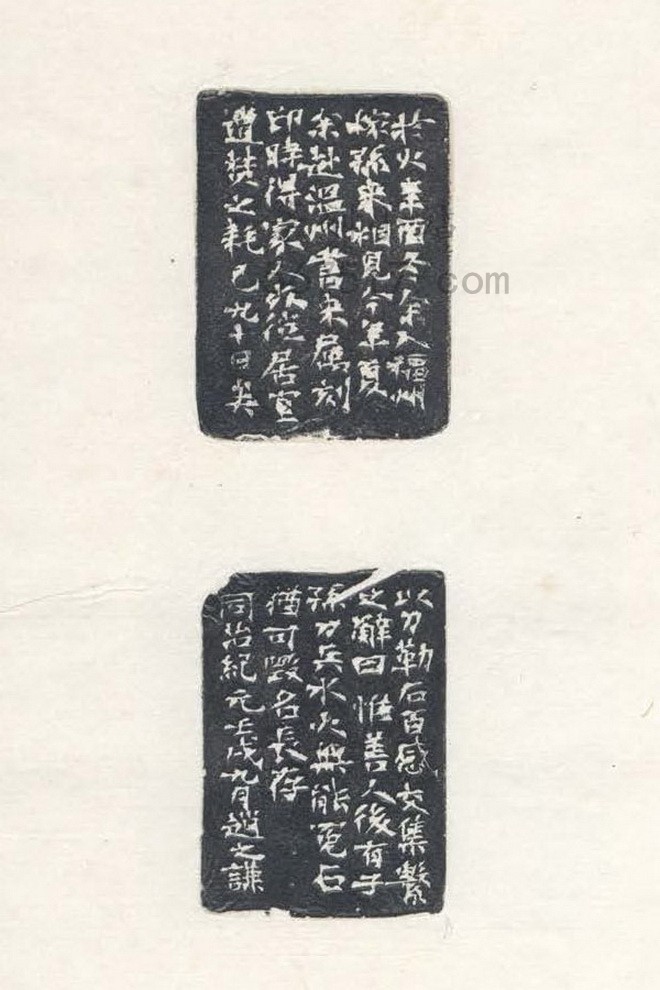 於火辛酉冬余入福州
稼孫來相見今年夏
余赴溫州書來屬刻
印時得家人攸從居室
遭焚之耗已九十日矣
以刀勒石百感交集繫
之辭曰惟善人後有子
孫刀兵水火無能冤石
猶可毀名長存
同治紀元壬戌九月趙之謙